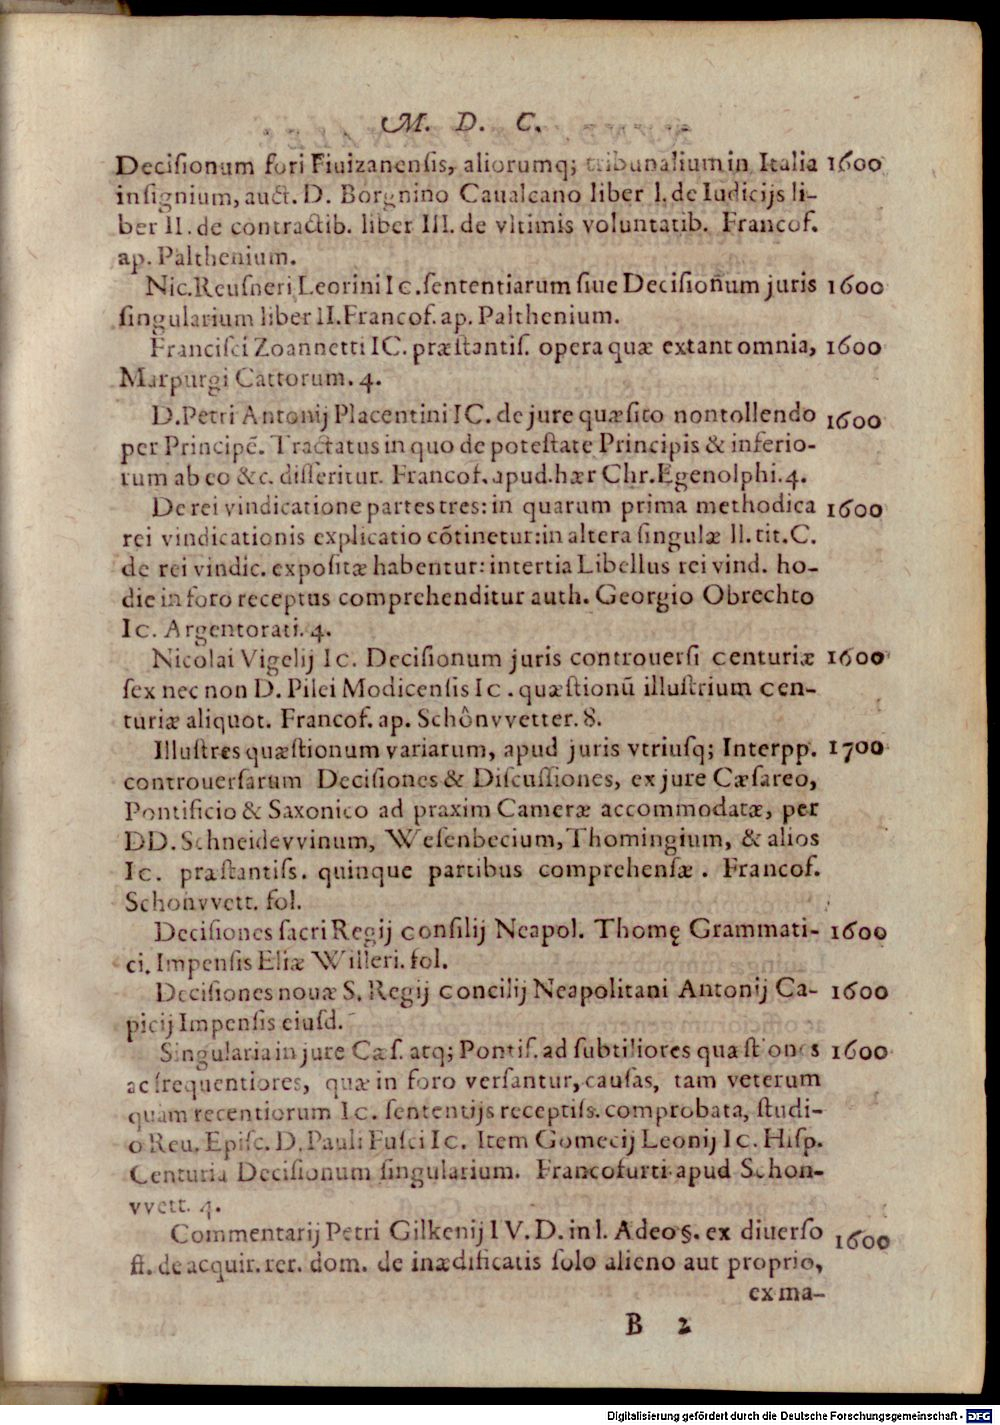 M. D. C.
Decisionum fori Fiuizanensis, aliorumq; tribunalium in Italia 1600
insignium, auct. D. Borgnino Caualcano liber I. de Iudicijs li-
ber II. de contractib. liber III. de vltimis voluntatib. Francof.
ap. Palthenium.
Nic. Reusneri Leorini Ic. sententiarum siue Decisionum juris 1600
singularium liber II. Francof. ap. Palthenium.
Francisci Zoannetti IC. præstantis. opera quæ extant omnia, 1600
Marpurgi Cattorum. 4.
D. Petri Antonij Placentini IC. de jure quæsito non tollendo 1600
per Principẽ. Tractatus in quo de potestate Principis & inferio-
rum ab eo &c. disseritur. Francof. apud. hær Chr. Egenolphi. 4.
De rei vindicatione partes tres: in quarum prima methodica 1600
rei vindicationis explicatio cõtinetur: in altera singulæ ll. tit. C.
de rei vindic. expositæ habentur: in tertia Libellus rei vind. ho-
die in foro receptus comprehenditur auth. Georgio Obrechto
Ic. Argentorati. 4.
Nicolai Vigelij Ic. Decisionum juris controuersi centuriæ 1600
sex nec non D. Pilei Modicensis Ic. quæstionũ illustrium cen-
turiæ aliquot. Francof. ap. Schônvvetter. 8.
Illustres quæstionum variarum, apud juris vtriusq; Interpp. 1700
controuersarum Decisiones & Discussiones, ex jure Cæsareo,
Pontificio & Saxonico ad praxim Cameræ accommodatæ, per
DD. Schneidevvinum, Wesenbecium, Thomingium, & alios
Ic. præstantiss. quinque partibus comprehensæ. Francof.
Schonvvett. fol.
Decisiones sacri Regij consilij Neapol. Thomę Grammati- 1600
ci. Impensis Eliæ Willeri. fol.
Decisiones nouæ S. Regij concilij Neapolitani Antonij Ca- 1600
picij Impensis eiusd.
Singularia in jure Cæs. atq; Pontif. ad subtiliores quæstiones 1600
ac frequentiores, quæ in foro versantur, causas, tam veterum
quam recentiorum Ic. sententijs receptiss. comprobata, studi-
o Reu. Episc. D. Pauli Fusci Ic. Item Gomecij Leonij Ic. Hisp.
Centuria Decisionum singularium. Francofurti apud Schon-
vvett. 4.
Commentarij Petri Gilkenij I V. D. in l. Adeo §. ex diuerso 1600
ff. de acquir. rer. dom. de inædificatis solo alieno aut proprio,
ex ma-
B 2
Digitalisierung gefördert durch die Deutsche Forschungsgemeinschaft - DFG